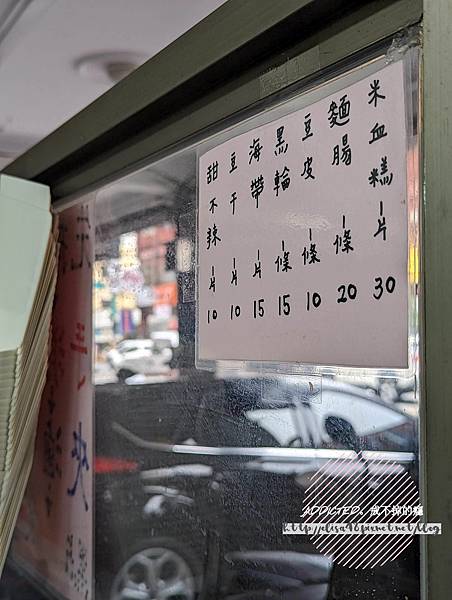 米血糕 1片 30
麵腸 1條 20
豆皮 1條 10
黑輪 1條 15
海帶 1片 15
豆干 1片 10
甜不辣 1片 10
ADDICTED。戒不掉的癮
http://elisa48.pixnet.net/blog